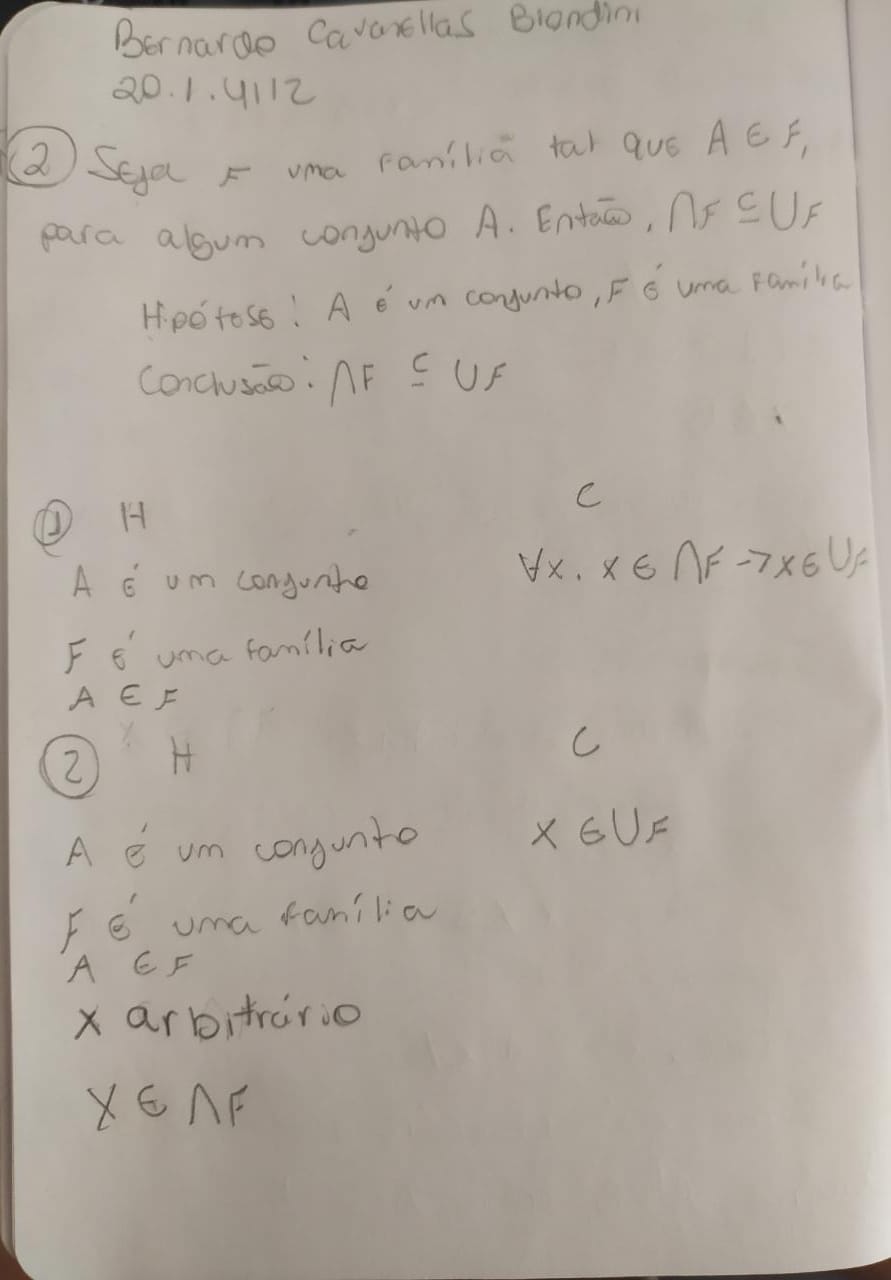 Bernardo Cavanellas Biondini
20.1.4112
2 Seja F uma família tal que A ∈ F,
para algum conjunto A. Então, ∩F ⊆ ∪F
Hipótose: A é um conjunto, F é uma família
Conclusão: ∩F ⊆ ∪F
1 H C
A é um conjunto ∀x. x ∈ ∩F → x ∈ ∪F
F é uma família
A ∈ F
2 H C
A é um conjunto x ∈ ∪F
F é uma família
A ∈ F
x arbitrário
x ∈ ∩F